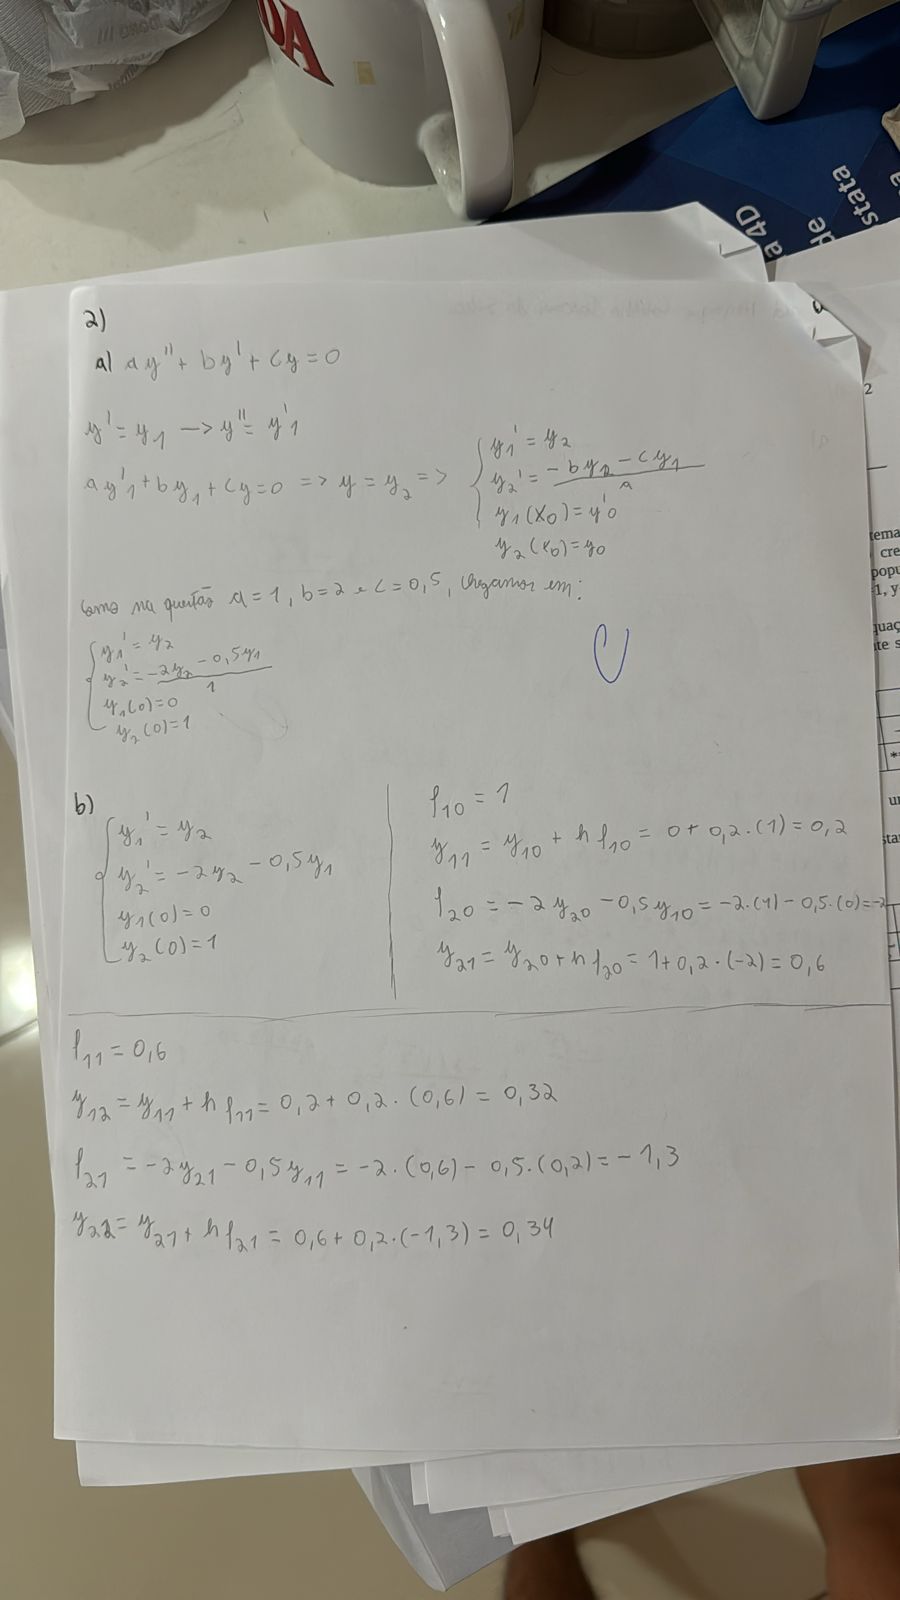 DA
a 4D
de
stata
2)
a) ay'' + by' + cy = 0
y' = y₁ —> y'' = y'₁
ay'₁ + by₁ + cy = 0 => y = y₂ => { y₁' = y₂
y₂' = (-by₂ - cy₁)/a
y₁(x₀) = y'₀
y₂(x₀) = y₀
Como na questão a = 1, b = 2 e c = 0,5, chegamos em:
{ y₁' = y₂
y₂' = (-2y₂ - 0,5y₁)/1
y₁(0) = 0
y₂(0) = 1
b)
{ y₁' = y₂
y₂' = -2y₂ - 0,5y₁
y₁(0) = 0
y₂(0) = 1
f₁₀ = 1
y₁₁ = y₁₀ + h f₁₀ = 0 + 0,2 · (1) = 0,2
f₂₀ = -2y₂₀ - 0,5y₁₀ = -2·(1) - 0,5·(0) = -2
y₂₁ = y₂₀ + h f₂₀ = 1 + 0,2 · (-2) = 0,6
f₁₁ = 0,6
y₁₂ = y₁₁ + h f₁₁ = 0,2 + 0,2 · (0,6) = 0,32
f₂₁ = -2y₂₁ - 0,5y₁₁ = -2·(0,6) - 0,5·(0,2) = -1,3
y₂₂ = y₂₁ + h f₂₁ = 0,6 + 0,2·(-1,3) = 0,34
2
tema
cre
popu
1, y
quaç
te s